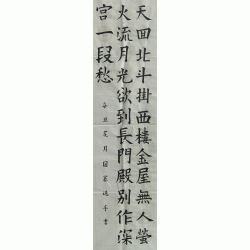 天回北斗掛西樓金屋無人螢
火流月光欲到長門殿別作深
宮一段愁
辛丑 月 書